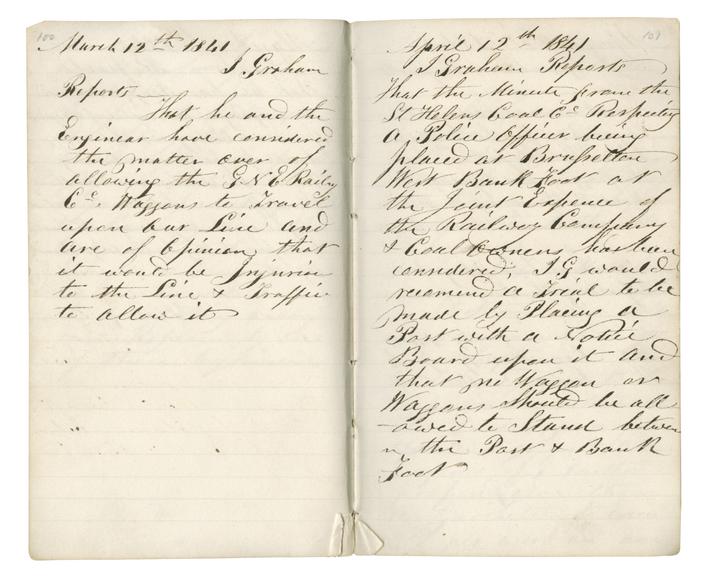 100
March 12th 1841
J Graham
Reports
That he and the
Enginear have considered
the matter over of
allowing the G N E Railwy
Co. Waggons to Travel
upon our Line and
are of Opinion that
it would be Injuries
to the Line & Traffic
to allow it
101
April 12th 1841
J Graham Reports
That the Minute from the
St Helens Coal Co Respecting
a Police Officer being
placed at Brusselton
West Bank Foot at
the Joint Expence of
the Railway Company
& Coal Owners has been
considered, J G would
recomend a Trial to be
made by Placing a
Post with a Notice
Board upon it and
that no Waggon or
Waggons should be all
-owed to Stand betwee
n the Post & Bank
Foot